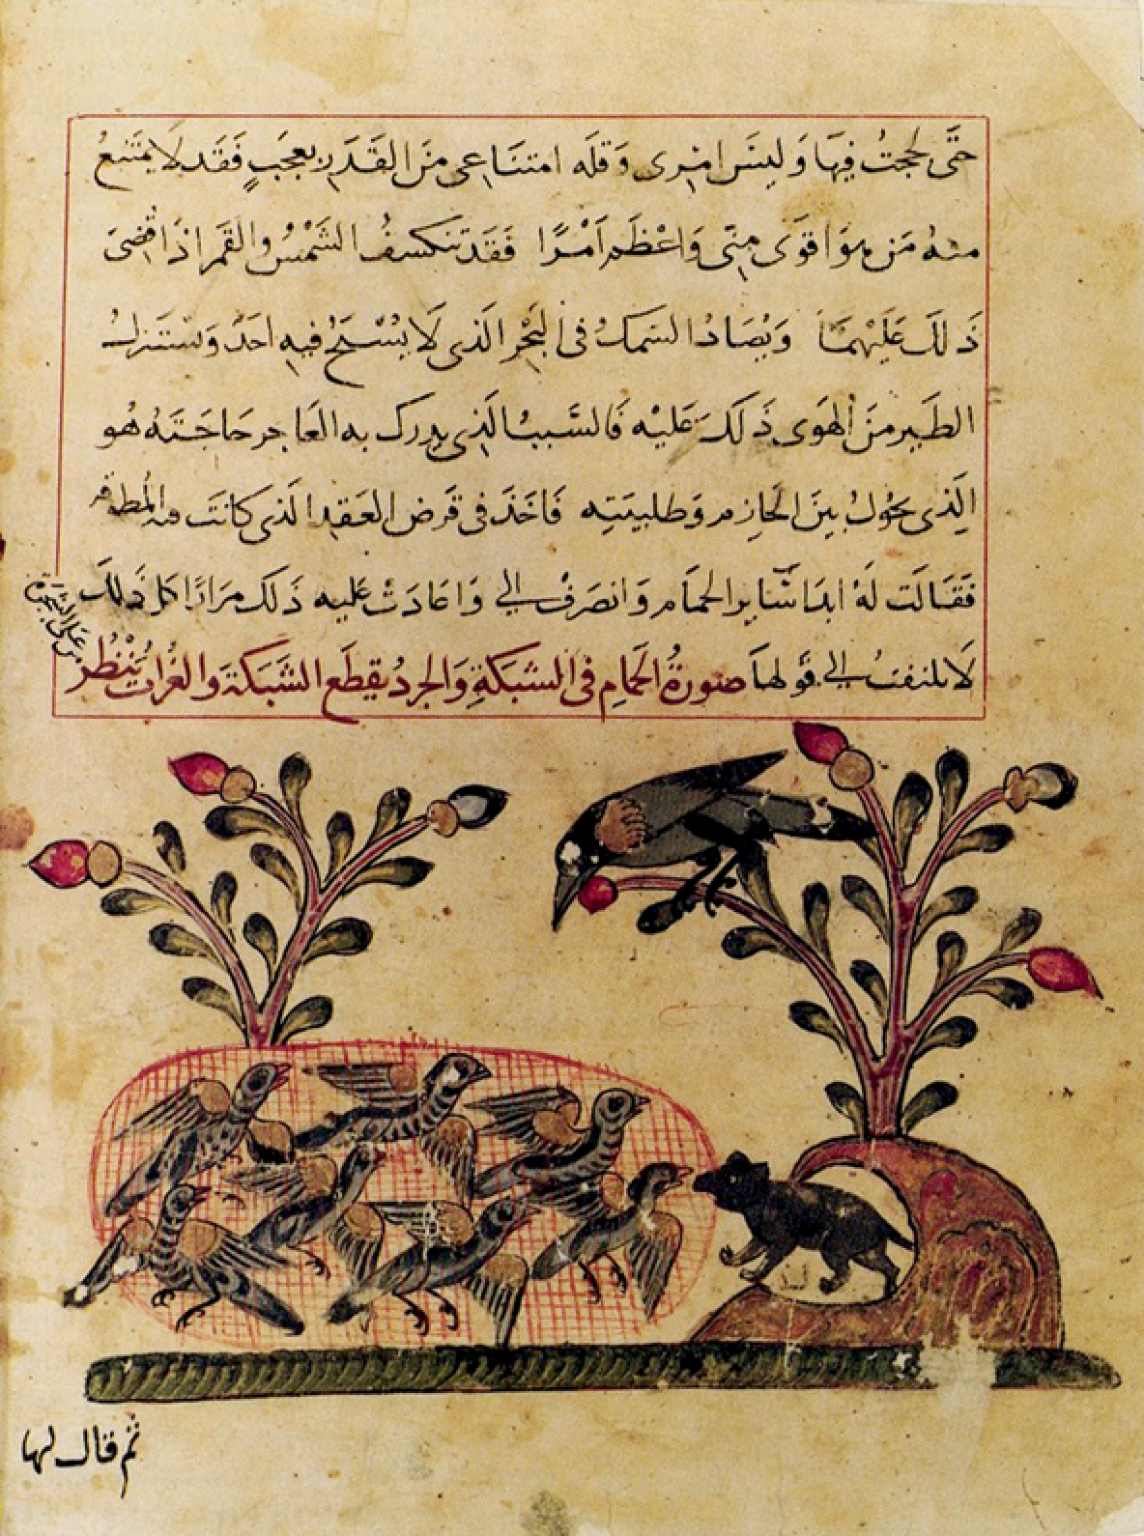 حَتَّى لججتُ فِيهَا وَلَيسَ امْرِى وَقلَه امتنَاعى مِنَ القَدَرِ بعجَبٍ فَقَد لَا يمتَنعُ
منهُ مَن هوَ اقوَى مِنّى وَاعْظَم اَمْرًا فَقَد تنكسفُ الشَمْسُ والقمَر اذَا قُضىَ
ذَلكَ عَلَيْهمَا وَيُصَادُ السَمكُ فى البَحْرِ الَذى لَا يُسْبَحُ فيهِ احَدٌ وَيستَنزلُ
الطَير مِنَ الهَوى ذَلَكَ عَليْه فَالسَّببُ الَذِى يدرك به العَاجز حَاجَتَهُ هُو
الَذِى يحُولُ بينَ الحَازِم وَطلبِتِه فَاخَذَ فى قَرض العَقدِ الَذى كَانَت فيه المُطوقَه
فَقَالَت لَهُ ابدَا بسَايرِ الحمَامِ وَانصَرفْ الى وَاعَادَتْ عَليه ذَلكَ مرَارًا كلّ ذَلكَ
لَا يلتفتُ الى قَولهَا صورةُ الحَمَامِ فى الشبكَةِ وَالجردُ يقطَع الشَبَكَةَ والغُراب يَنْظُر
من عَلى الشجَرَة
ثم قال لها